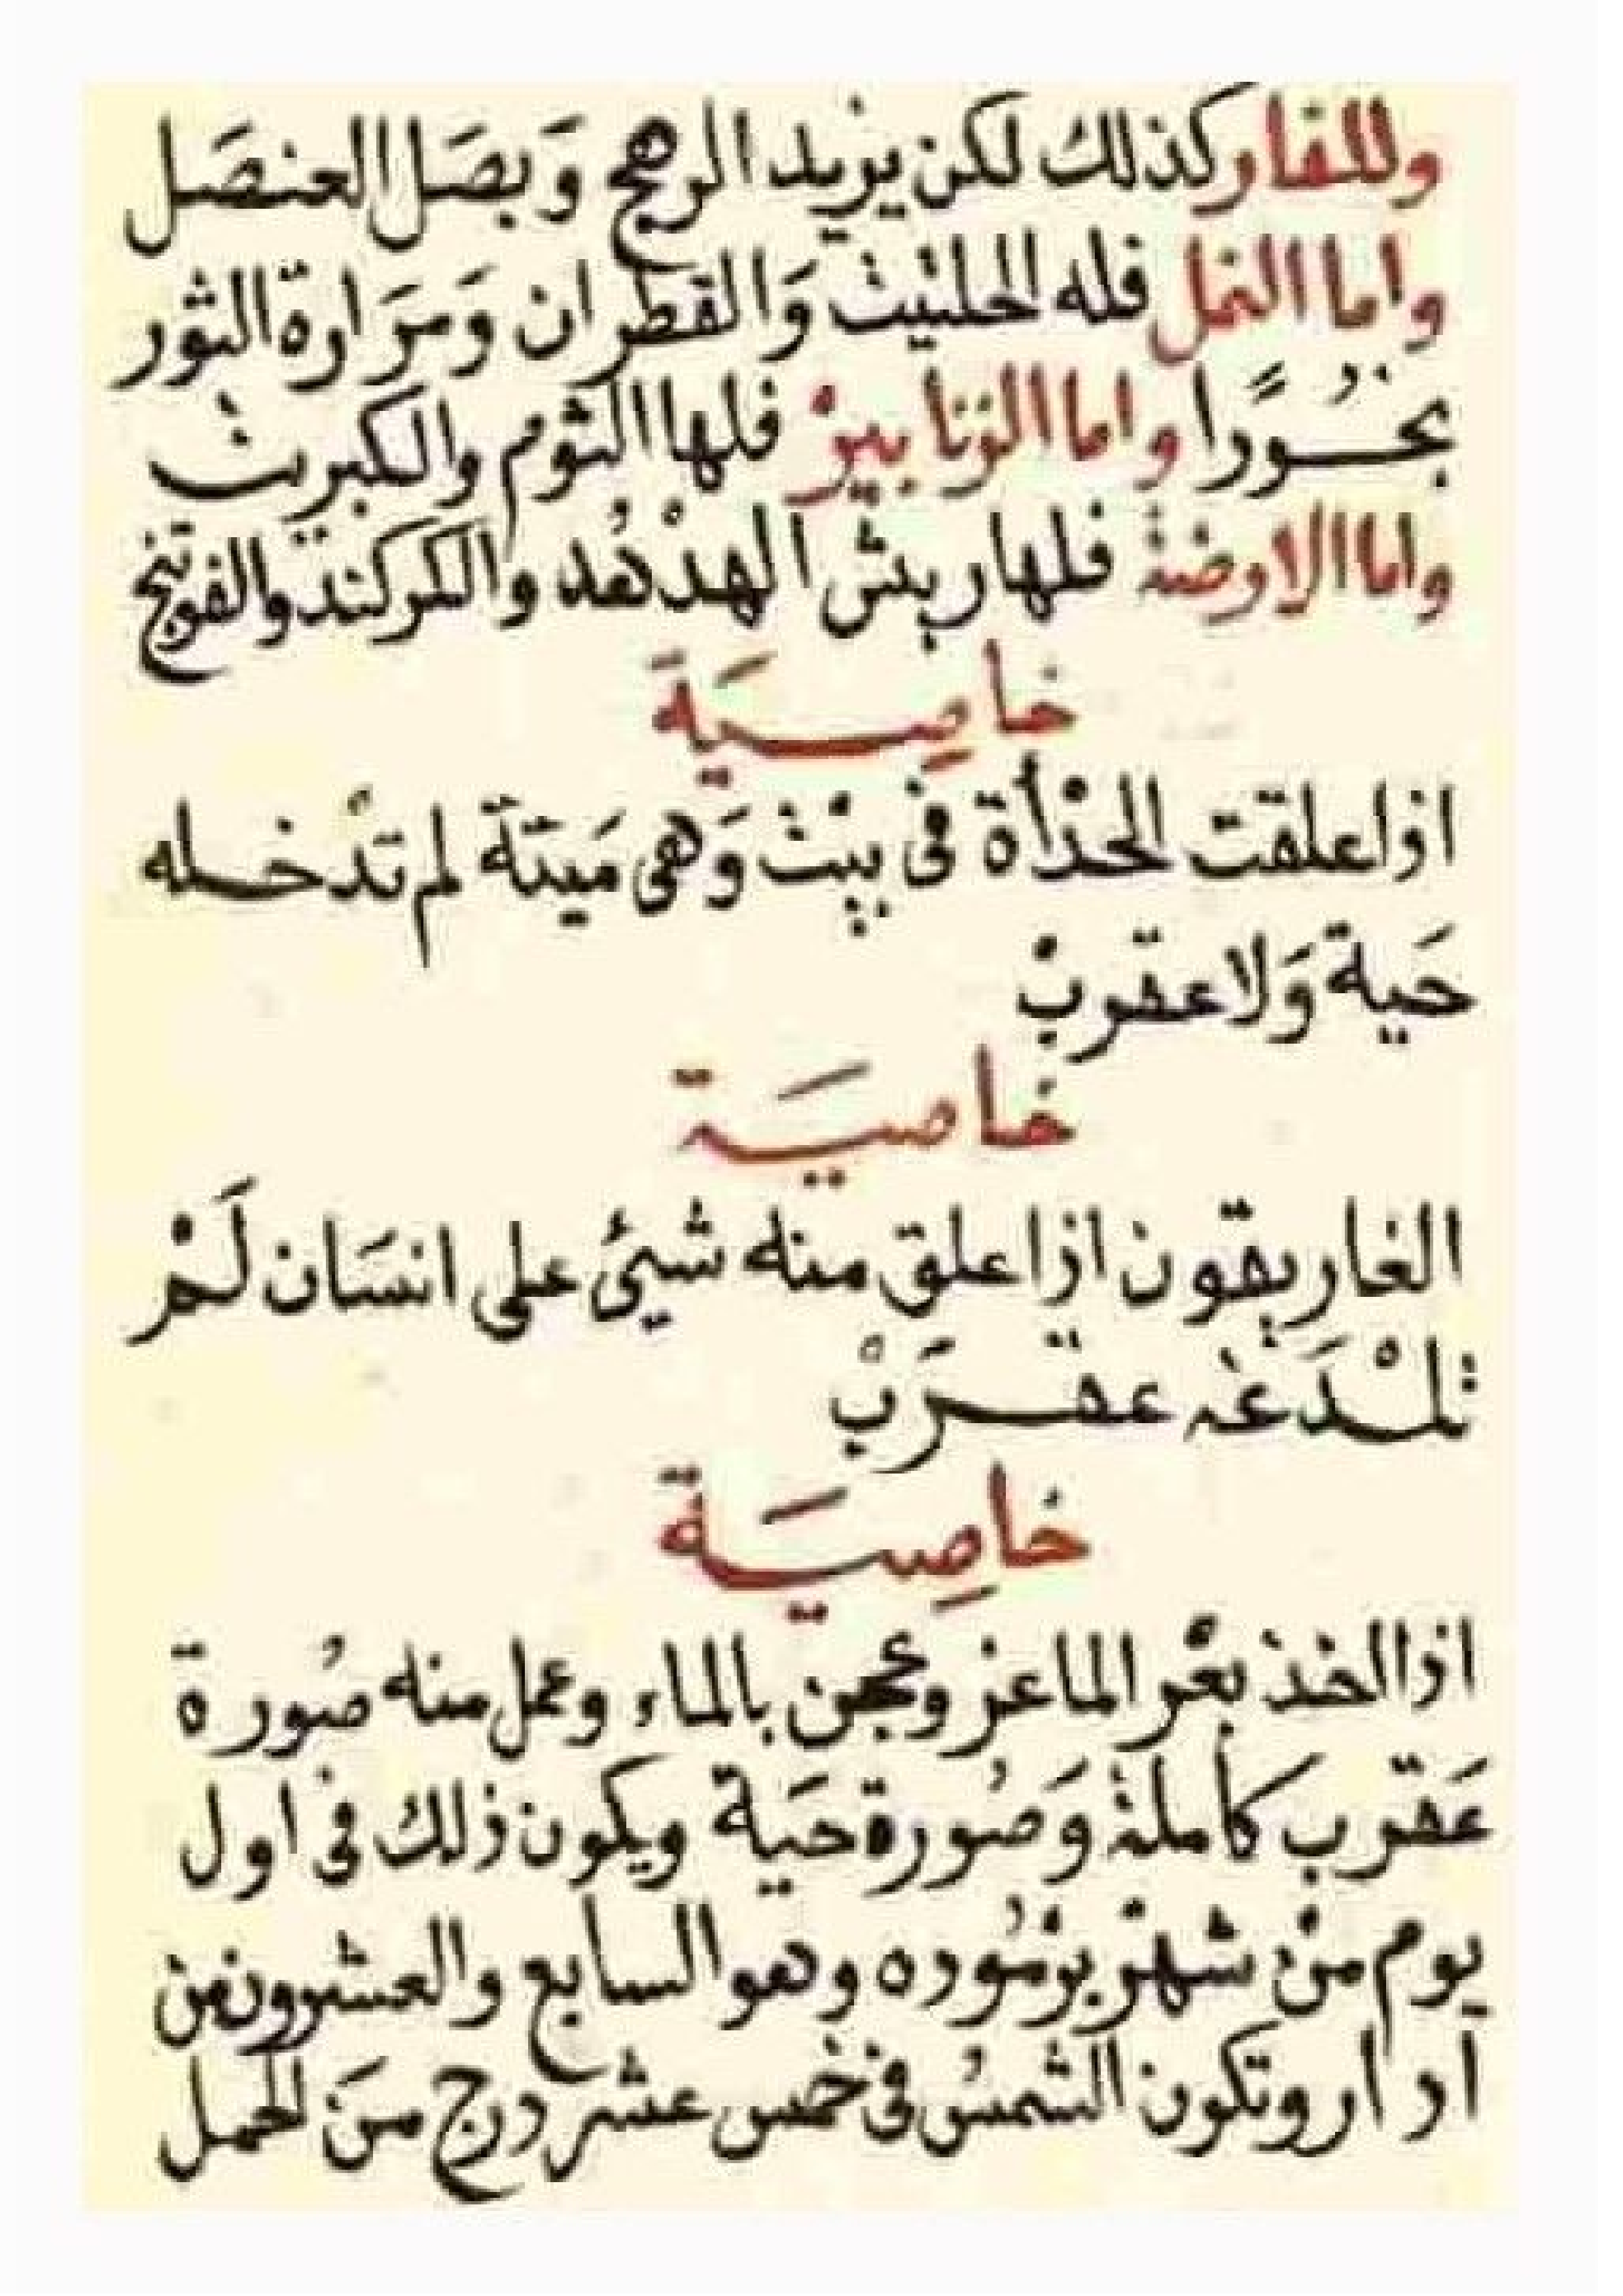 وللفار كذلك لكن يزيد الرهج وَبصَل العنصَل
واما النمل فله الحلتيت وَالقطران وَمرَارة الثور
بخُورًا واما الزنابير فلها الثوم والكبريت
واما الارضة فلها ريش الهدْهُد والكركند والفوتنج
خاصِيَة
اذا علقت الحدْأة فى بيْت وَهى مَيتة لم تدْخله
حَية وَلا عقربْ
خاصيَة
الغاريقون اذا علق منه شيئ على انسَان لَمْ
تلْدَغه عقرَبْ
خاصِيَة
اذا اخذ بعْر الماعز وعجن بالماء وعمل منه صُورة
عَقرب كاملة وَصُورة حَية ويكون ذلك فى اول
يوم منْ شهْر برمُوده وهو السابع والعشرون من
آذار وتكون الشمسُ فى خمس عشر درج منَ الحمل